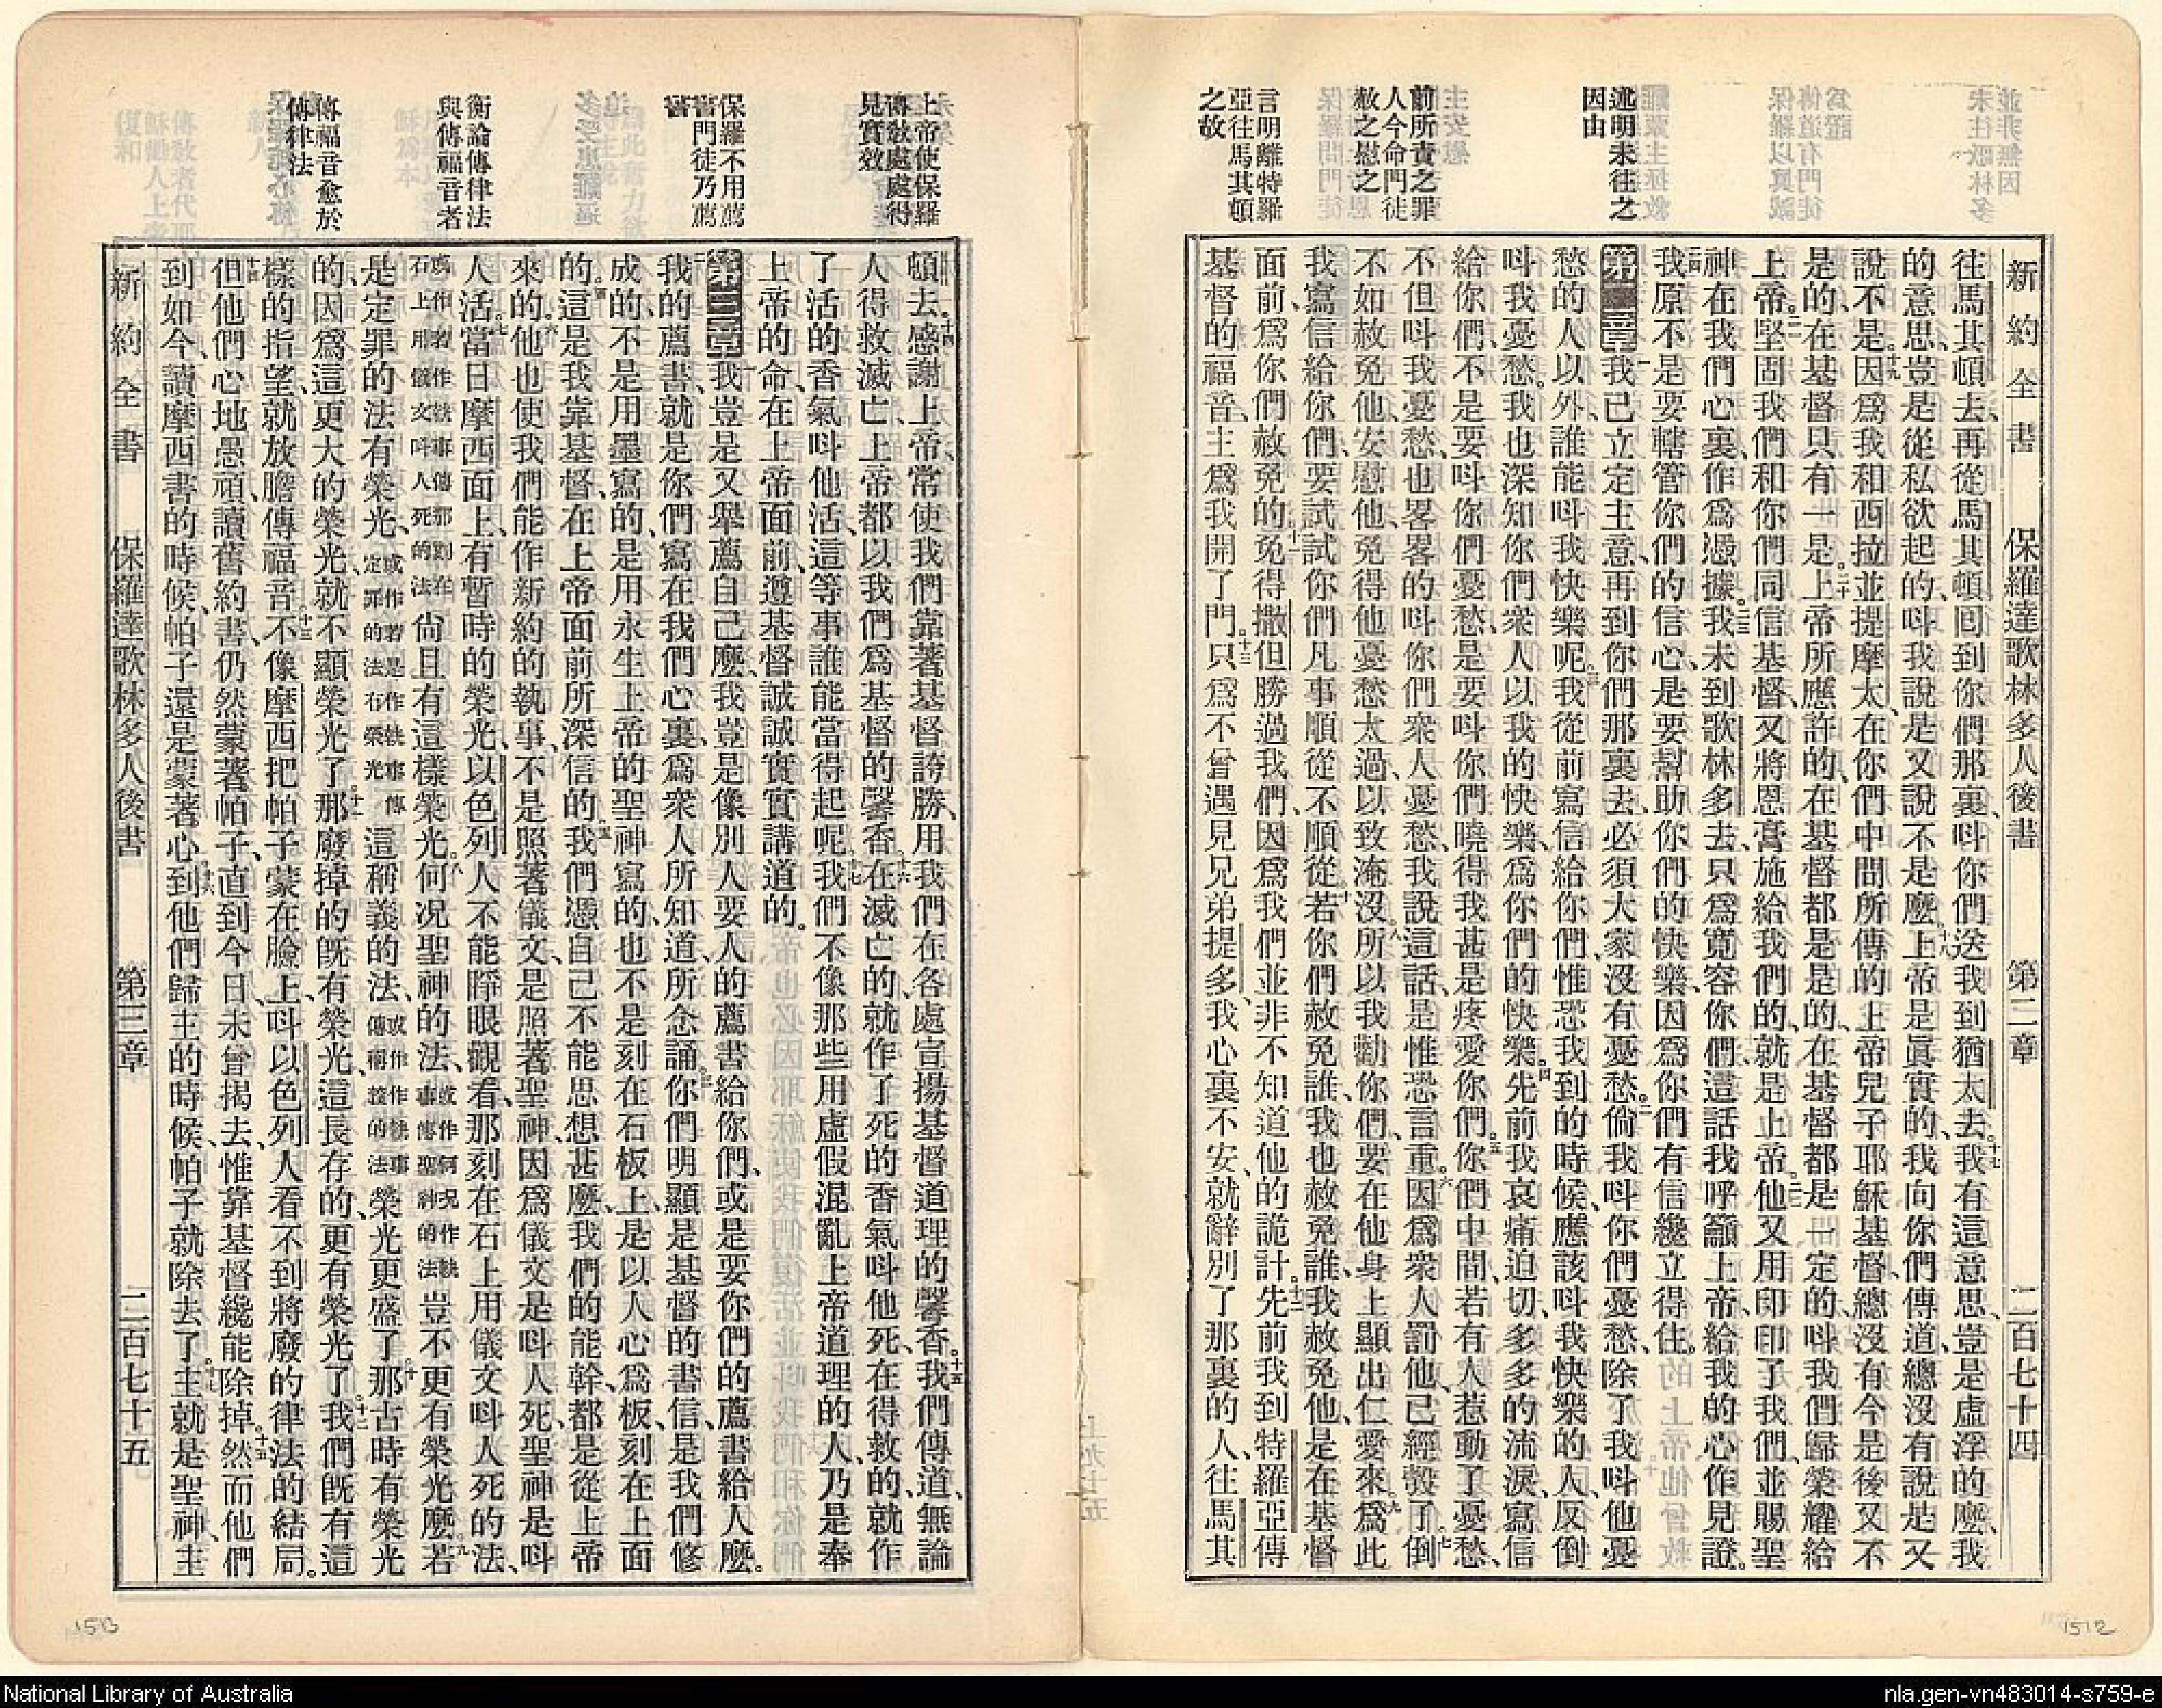 新約全書 保羅達歌林多人後書 第二章 二百七十四
述明未往之
因由
前所責之罪
人今命門徒
赦之慰之
言明離特羅
亞往馬其頓
之故
往馬其頓去、再從馬其頓回到你們那裏、呌你們送我到猶太去。十七我有這意思、豈是虛浮的麽、我
的意思、豈是從私欲起的、呌我說是又說不是麽。十八上帝是眞實的、我向你們傳道、總沒有說是又
說不是。十九因爲我和西拉並提摩太、在你們中間所傳的上帝兒子耶穌基督、總沒有今是後又不
是的、在基督只有一是。二十上帝所應許的、在基督都是是的、在基督都是一定的、呌我們歸榮耀給
上帝。二一堅固我們和你們同信基督、又將恩膏施給我們的、就是上帝。二二他又用印印了我們、並賜聖
神在我們心裏、作爲憑據。二三我未到歌林多去、只爲寬容你們、這話我呼籲上帝、給我的心作見證。
二四我原不是要轄管你們的信心、是要幫助你們的快樂、因爲你們有信纔立得住。
第二章一我已立定主意、再到你們那裏去、必須大家沒有憂愁。二倘我呌你們憂愁、除了我呌他憂
愁的人以外、誰能呌我快樂呢。三我從前寫信給你們、惟恐我到的時候、應該呌我快樂的人、反倒
呌我憂愁。我也深知你們衆人以我的快樂、爲你們的快樂。四先前我哀痛迫切、多多的流淚、寫信
給你們、不是要呌你們憂愁、是要呌你們曉得我甚是疼愛你們。五你們中間、若有人惹動了憂愁、
不但呌我憂愁、也畧畧的呌你們衆人憂愁、我說這話、是惟恐言重。六因爲衆人罰他、已經彀了。七倒
不如赦免他、安慰他、免得他憂愁太過、以致淹沒。八所以我勸你們、要在他身上顯出仁愛來。九爲此
我寫信給你們、要試試你們凡事順從不順從。十若你們赦免誰、我也赦免誰、我赦免他、是在基督
面前、爲你們赦免的。十一免得撒但勝過我們、因爲我們並非不知道他的詭計。十二先前我到特羅亞傳
基督的福音、主爲我開了門。十三只爲不曾遇見兄弟提多、我心裏不安、就辭別了那裏的人、往馬其
1512
上帝使保羅
傳敎處處得
見實效
保羅不用薦
書門徒乃薦
書
衡論傳律法
與傳福音者
傳福音愈於
傳律法
頓去。十四感謝上帝、常使我們靠著基督誇勝、用我們在各處宣揚基督道理的馨香。十五我們傳道、無論
人得救滅亡、上帝都以我們爲基督的馨香。十六在滅亡的、就作了死的香氣呌他死、在得救的、就作
了活的香氣呌他活、這等事誰能當得起呢。十七我們不像那些用虛假混亂上帝道理的人、乃是奉
上帝的命、在上帝面前、遵基督誠誠實實講道的。
第三章一我豈是又舉薦自己麽、我豈是像別人要人的薦書給你們、或是要你們的薦書給人麽。
二我的薦書、就是你們、寫在我們心裏、爲衆人所知道、所念誦。三你們明顯是基督的書信、是我們修
成的、不是用墨寫的、是用永生上帝的聖神寫的、也不是刻在石板上、是以人心爲板、刻在上面
的。四這是我靠基督、在上帝面前所深信的。五我們憑自己不能思想甚麼、我們的能幹、都是從上帝
來的。六他也使我們能作新約的執事、不是照著儀文、是照著聖神、因爲儀文是呌人死、聖神是呌
人活。七當日摩西面上、有暫時的榮光、以色列人不能睜眼觀看、那刻在石上用儀文呌人死的法、
或作若作執事傳那刻在
石上用儀文呌人死的法尙且有這樣榮光。八何况聖神的法、或作何况作執
事傳聖神的法豈不更有榮光麽。九若
是定罪的法有榮光、或作若是作執事傳
定罪的法有榮光這稱義的法、或作作執事
傳稱義的法榮光更盛了。十那古時有榮光
的、因爲這更大的榮光、就不顯榮光了。十一那廢掉的旣有榮光、這長存的、更有榮光了。十二我們旣有這
樣的指望、就放膽傳福音。十三不像摩西把帕子蒙在臉上、呌以色列人看不到將廢的律法的結局。
十四但他們心地愚頑、讀舊約書、仍然蒙著帕子、直到今日、未曾揭去、惟靠基督纔能除掉。十五然而他們
到如今、讀摩西書的時候、帕子還是蒙著心。十六到他們歸主的時候、帕子就除去了。十七主就是聖神、主
新約全書 保羅達歌林多人後書 第三章 二百七十五
1513
National Library of Australia
nla.gen-vn483014-s759-e